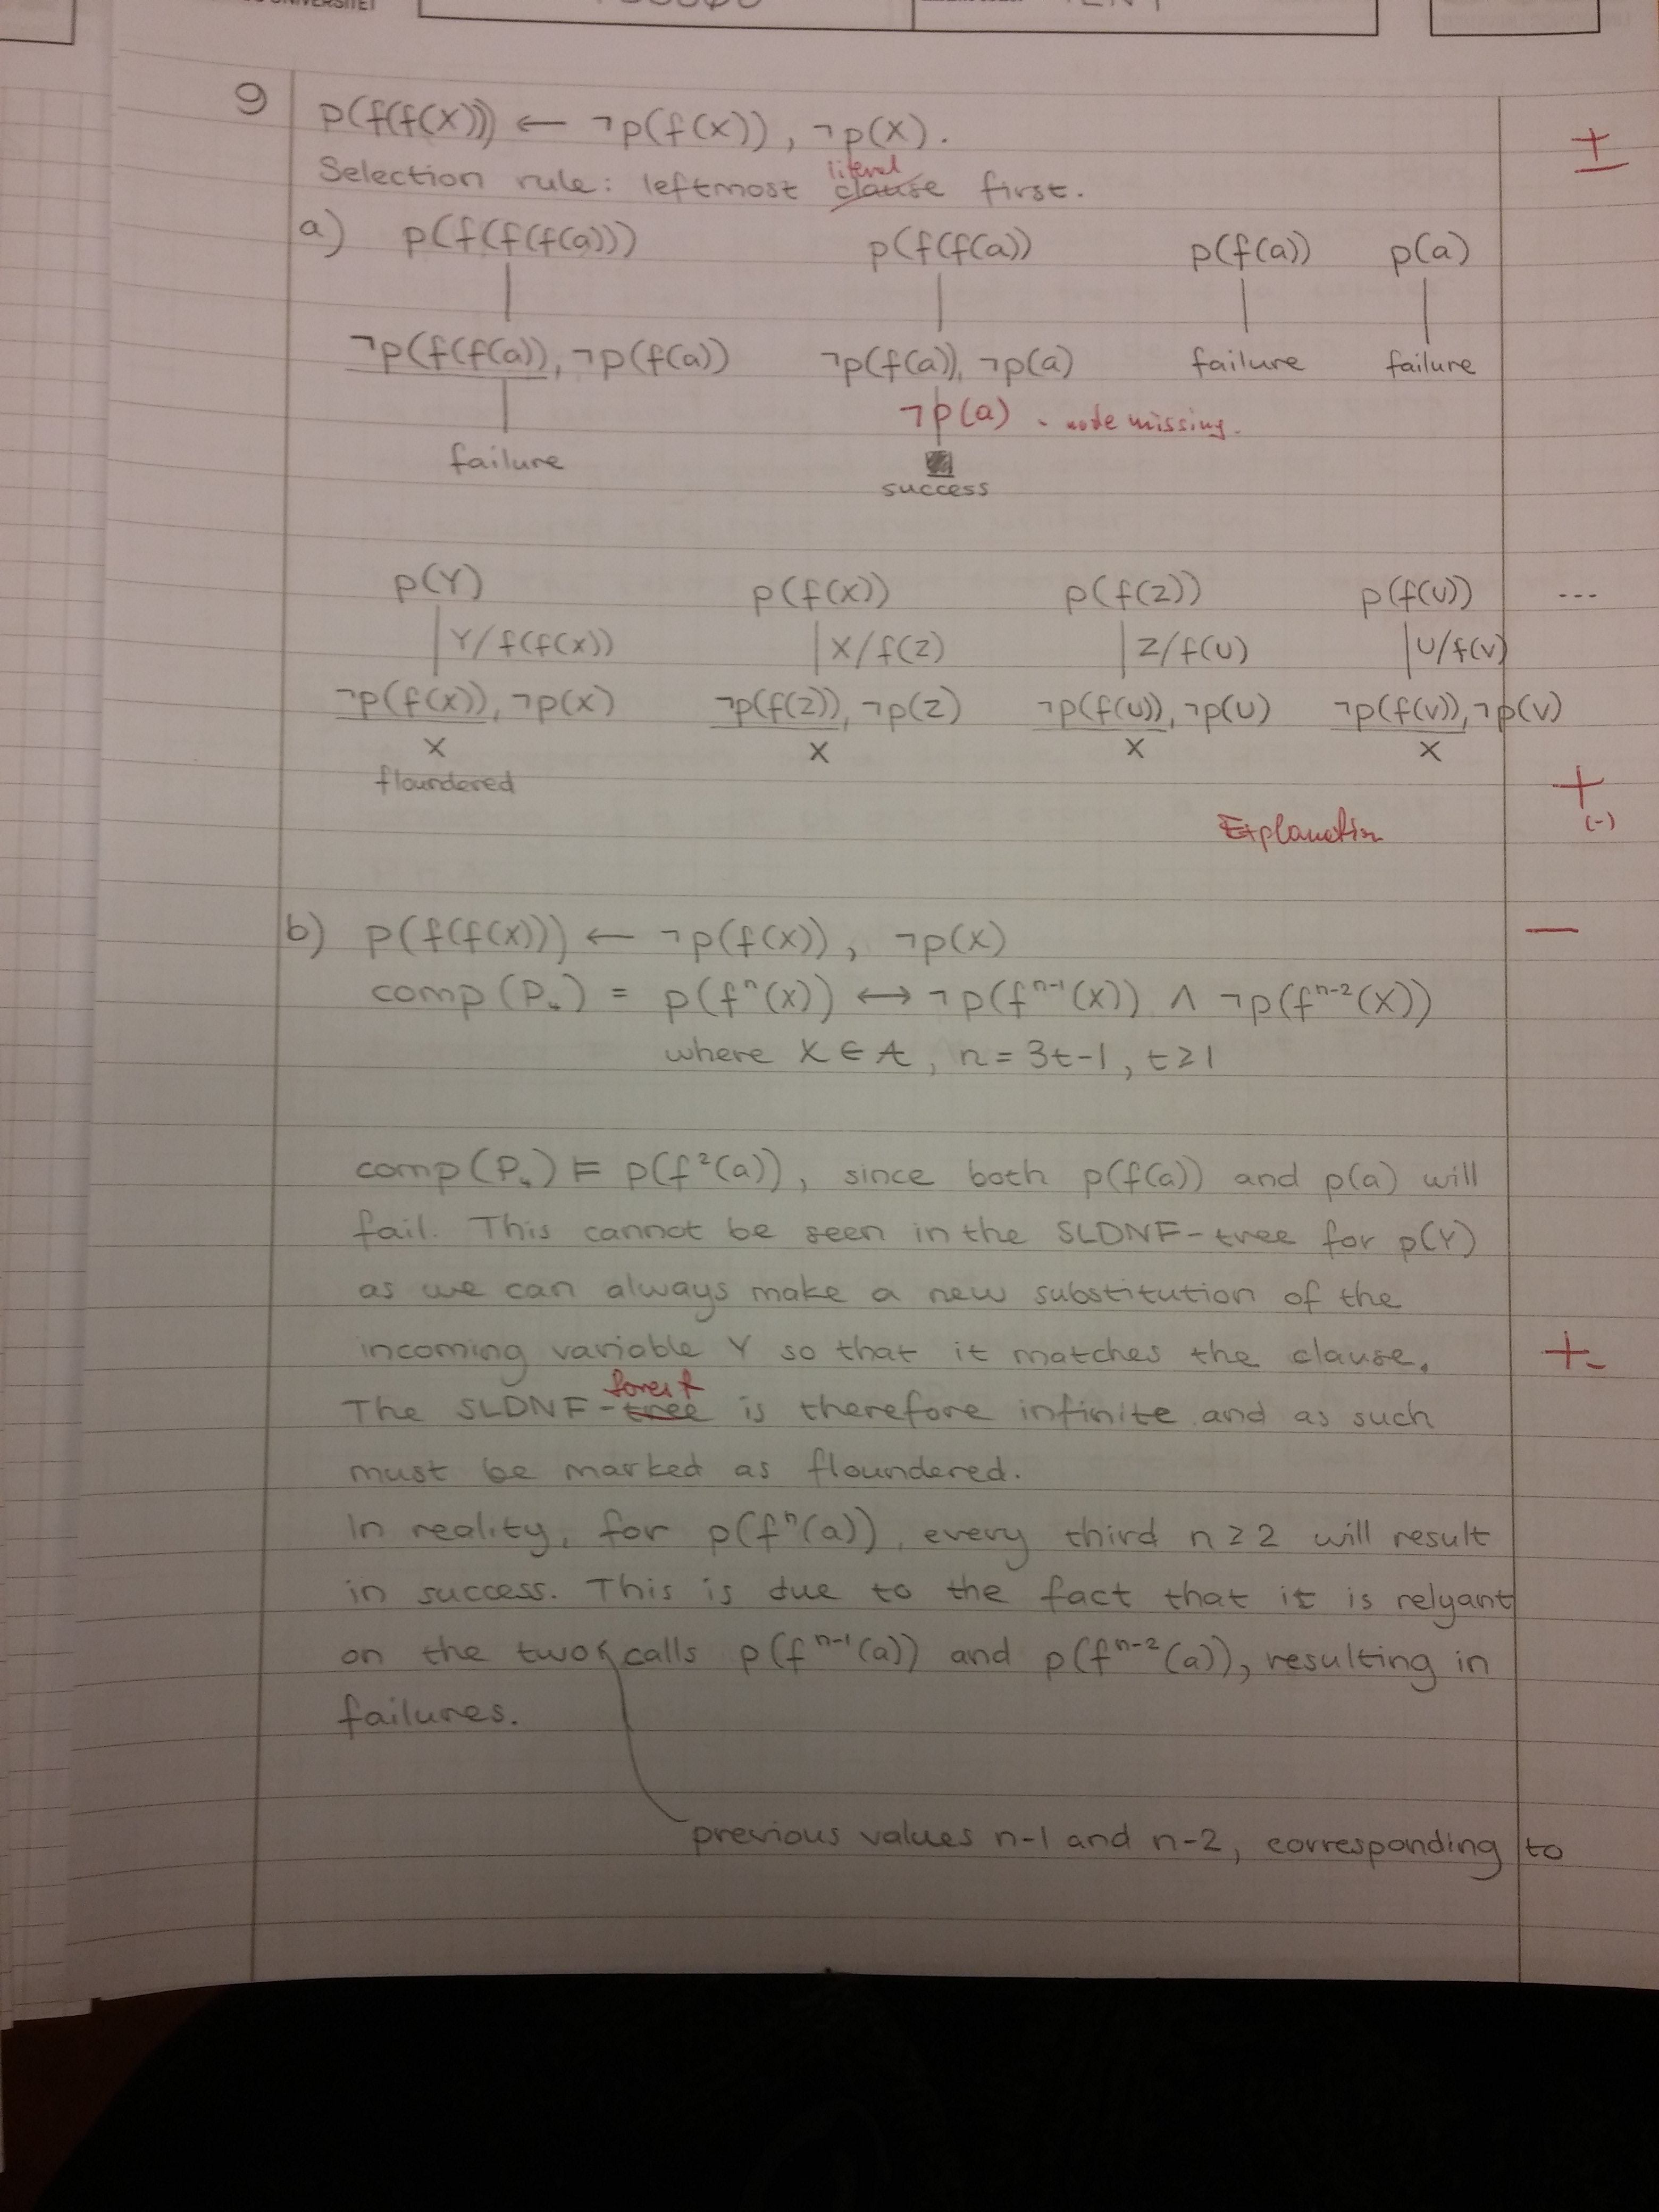 9
p(f(f(X))) ← ¬p(f(X)), ¬p(X).
±
literal
Selection rule: leftmost clause first.
a) p(f(f(f(a))) p(f(f(a)) p(f(a)) p(a)
¬p(f(f(a)), ¬p(f(a)) ¬p(f(a)), ¬p(a) failure failure
¬p(a) - node missing.
failure
success
p(Y) p(f(X)) p(f(Z)) p(f(U)) ...
Y/f(f(X)) X/f(Z) Z/f(U) U/f(V)
¬p(f(X)), ¬p(X) ¬p(f(Z)), ¬p(Z) ¬p(f(U)), ¬p(U) ¬p(f(V)), ¬p(V)
X X X X
floundered
+
(-)
Explanation
b) p(f(f(X))) ← ¬p(f(X)), ¬p(X)
—
comp(P₄) = p(fⁿ(X)) ↔ ¬p(fⁿ⁻¹(X)) ∧ ¬p(fⁿ⁻²(X))
where X ∈ A, n = 3t-1, t ≥ 1
comp(P₄) ⊨ p(f²(a)), since both p(f(a)) and p(a) will
fail. This cannot be seen in the SLDNF-tree for p(Y)
as we can always make a new substitution of the
incoming variable Y so that it matches the clause.
+-
forest
The SLDNF-tree is therefore infinite and as such
must be marked as floundered.
In reality, for p(fⁿ(a)), every third n ≥ 2 will result
in success. This is due to the fact that it is relyant
on the two calls p(fⁿ⁻¹(a)) and p(fⁿ⁻²(a)), resulting in
failures.
previous values n-1 and n-2, corresponding to